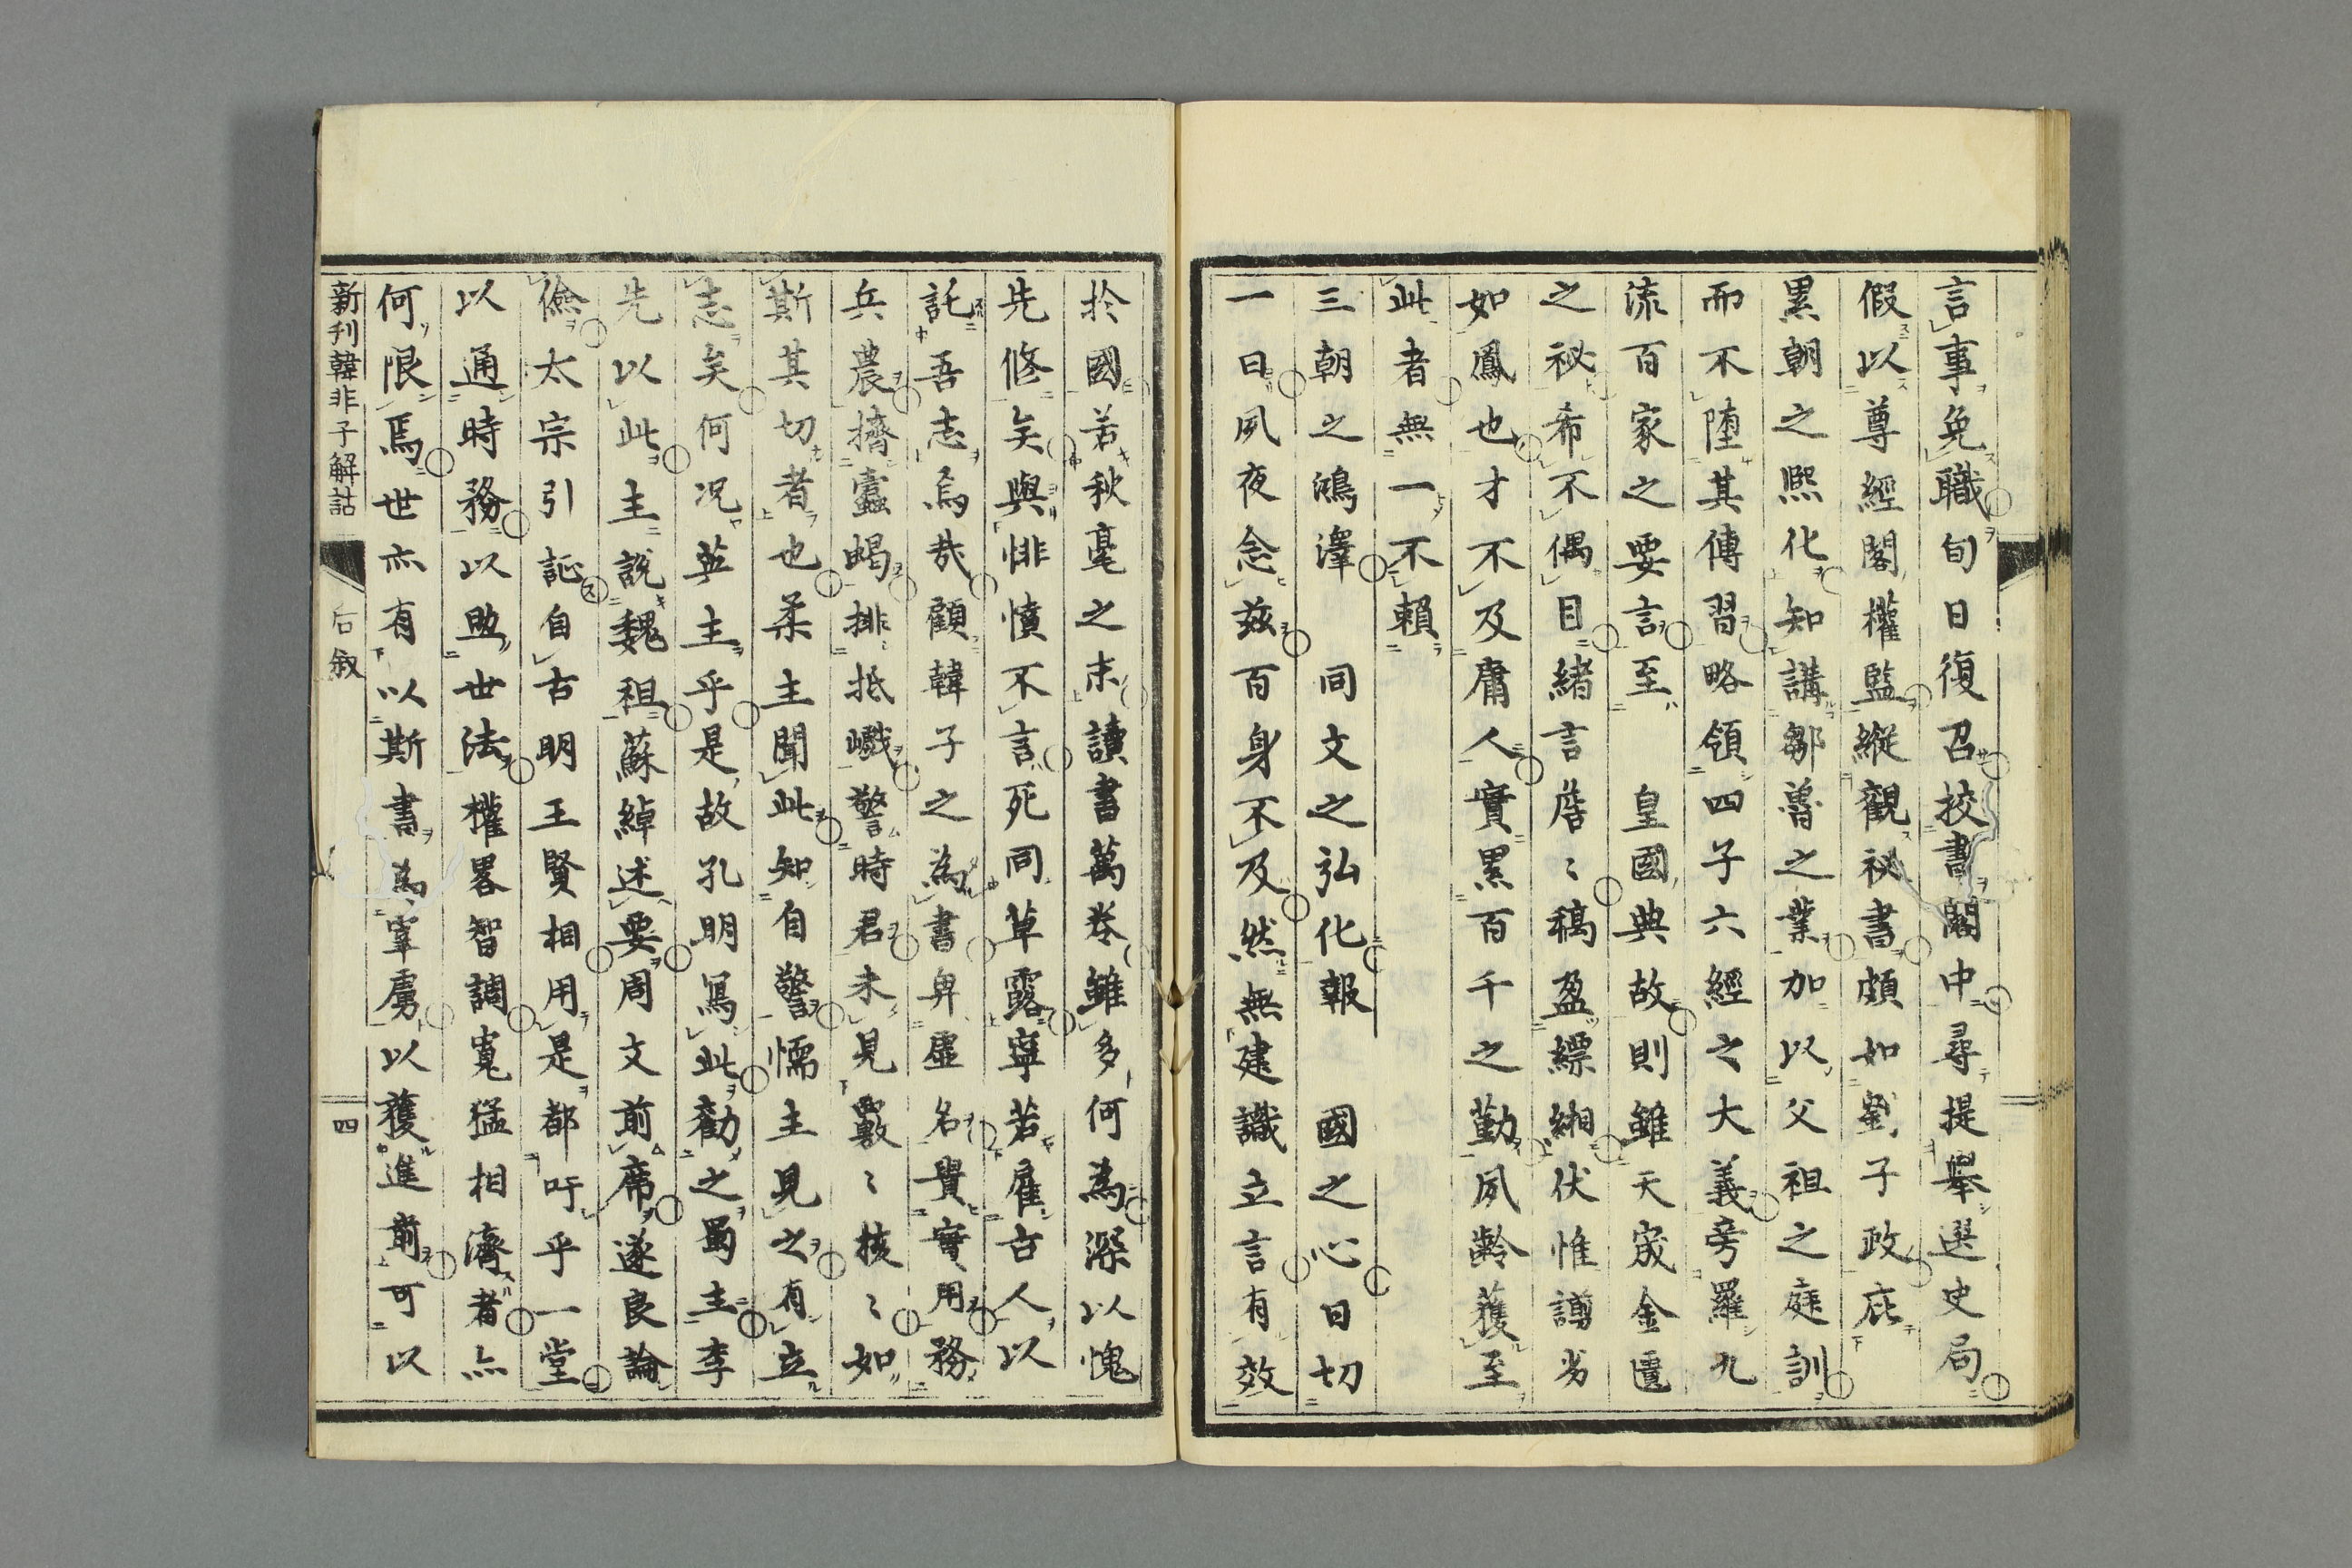 言事免職旬日復召挍書閣中尋提舉選史局
假以尊經閣權監縱觀祕書頗如劉子政庇
累朝之熙化知講鄒魯之業加以父祖之庭訓
而不墮其傳習略領四子六經之大義旁羅九
流百家之要言至　皇國典故則雖天宬金匱
之祕希不偶目緒言詹〻稿盈縹緗伏惟譾劣
如鳳也才不及庸人實累百千之勤夙齡獲至
此者無一不賴
三朝之鴻澤　同文之弘化報　國之心日切
一日夙夜念兹百身不及然無建識立言有效
扵國若秋毫之末讀書萬卷雖多何為深以愧
先修矣與悱憤不言死同草露寧若雇古人以
託吾志烏哉顧韓子之為書卑虛名貴實用務
兵農擠蠹蝎排抵巇警時君未見覈〻核〻如
斯其切者也柔主聞此知自警懦主見之有立
志矣何况英主乎是故孔明寫此勸之蜀主李
先以此主說魏祖蘇綽述要周文前席遂良論
儉太宗引証自古明王賢相用是都吁乎一堂
以通時務以毗世法權畧智調寬猛相濟者亦
何限焉世亦有以斯書為宰虜以獲進前可以
新刊韓非子解詁　后敘　四